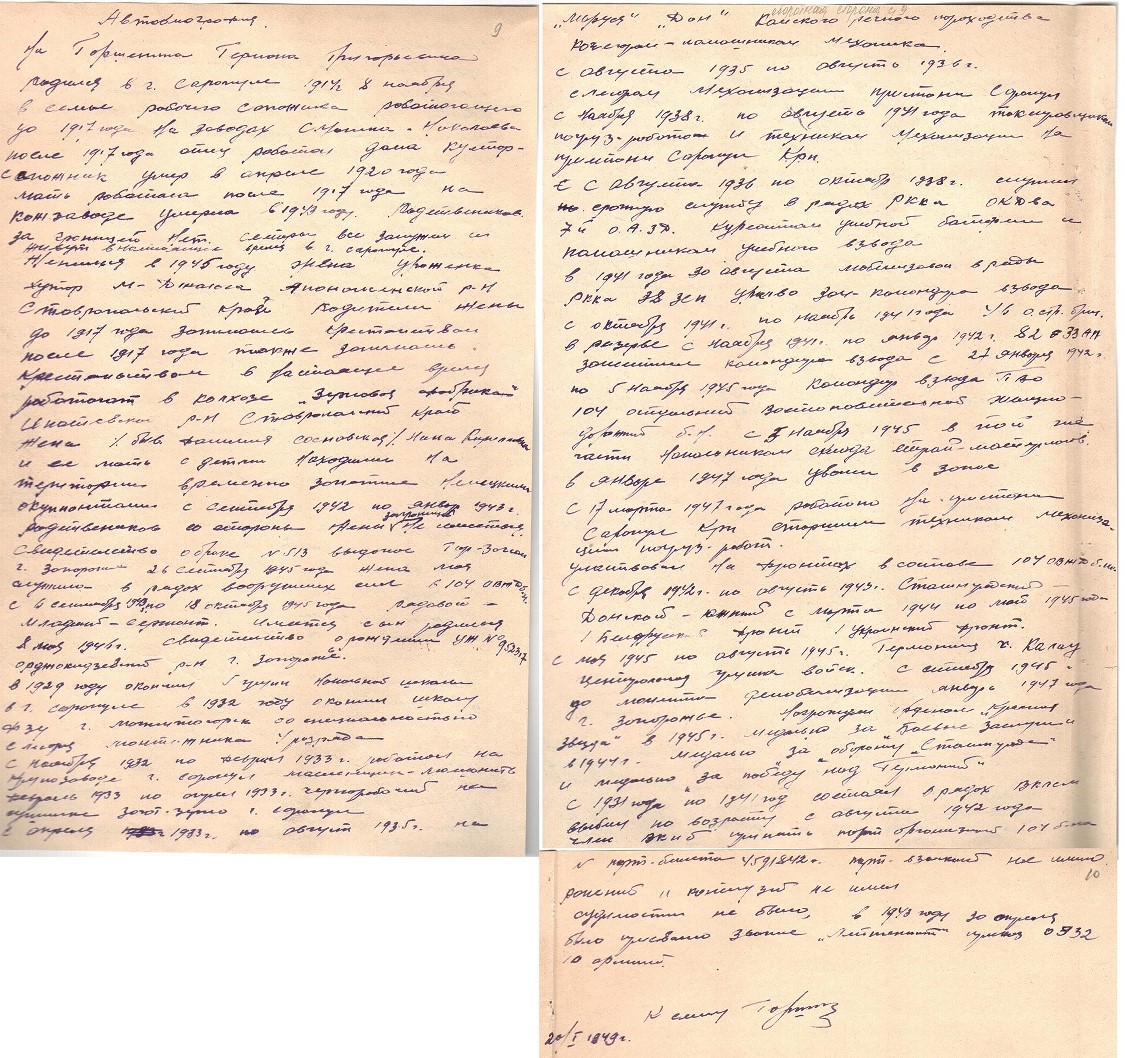 Автобиография.
9
На Горшенина Германа Григорьевича
родился в г. Сарапуле 1917г 8 ноября
в семье рабочего сапожника работающего
до 1917 года на заводах Смагина - Николаева
после 1917 года отец работал дома кустор-
сапожник умер в апреле 1920 года
мать работала после 1917 года на
кожзаводе умерла в 1943 году. Родственников
за границей нет. сестры все замужем и
живут в настоящее время в г. Сарапуле.
Женился в 1945 году жена уроженка
хутор М-Джалга Апанасенский р-н
Ставропольский край родители жены
до 1917 года занимались крестьянством
после 1917 года также занимались
крестьянством в настоящее время
работают в колхозе „Зерновая фабрика"
Ипатовский р-н Ставропольский край
Жена /быв. фамилия Сосновская/ Нина Кириловна
и ее мать с детьми находились на
територии временно занятые немецкими
окупантами с сентября 1942 по январь 1943г.
родственников со стороны жены заграницей не имеется
Свидетельство о браке N 513 выдано Гор-Загсом
г. Запорожье 26 сентября 1945 года жена моя
служила в рядах вооруженных сил в 104
с 6 сентября по 18 октября 1945 года рядовой -
младший-сержант. Имеется сын родился
8 мая 1946г. свидетельство о рождении
орджоникидзевский р-н г. Запорожье.
в 1929 году окончил 5 групп начальной школы
в г. Сарапуле в 1932 году окончил школу
ФЗУ г. Магнитогорск со специальностью
слесаря монтажника разряда
с ноября 1932 по феврал 1933г. работал на
г. Сарапул
февраль 1933 по апрель 1933г. чернорабочий на
пристане Загот-зерно г. Сарапул
с апреля 1933г. по август 1935г. на
„Маруся" „Дон" Камского речного пароходства
кочегаром - помошником механика.
с августа 1935 по август 1936г.
слесарем механизации пристани Сарапул
с ноября 1938г. по август 1941 года
погруз-работам и техником механизации на
пристани Сарапул Крп.
с августа 1936 по октябрь 1938г. служил
срочную службу в рядах РККА ОКДВА
7й о.А.ЗД. Курсантом учебной батареи и
помошником учебного взвода
в 1941 года 30 августа мобилизован в ряды
РККА 38 зсп учбат зам-командира взвода
с октября 1941г. по ноябрь 1941 года 46 о.стр. бриг.
в резерве с ноября 1941г. по январь 1942г. 82 ОЗЗАП
заместителем командира взвода с 27 января 1942г.
по 5 ноября 1945 года командир взвода ПВО
104 отдельный востоновительный железно-
дорожный б.н. с 5 ноября 1945 в той же
части начальником склада
в январе 1947 года уволен в запас
с 17 марта 1947 года работаю на пристани
Сарапул Крп старшим техником механиза-
ции погруз-работ.
участвовал на фронтах в составе 104
с декабря 1942г. по август 1943г. Сталинградский -
Донской - южный с марта 1944 по май 1945 года
1 Белорусский фронт 1 Украинский фронт.
с мая 1945 по август 1945г. Германия г. Калау
центральная группа войск. с сентября 1945
до момента демобилизации январь 1947 года
г. Запорожье. Награжден орденом „Красная
звезда" в 1945г. медалью за „Боевые заслуги"
в 1944г. медалью за оборону „Сталинграда"
и медалью „за победу над Германией"
с 1931 года по 1941 год состоял в рядах ВЛКСМ
выбыл по возрасту с августа 1942 года
член ВКПб принят парт организацией 104 б-на
N парт-билета 4591842. парт-взысканий не имею.
10
ранений и контузий не имел
судимости не было, в 1943 году 30 апреля
было присвоено звание „Лейтенант" приказ 0332
10 армией.
К сему Горшен
20/I 1949г.